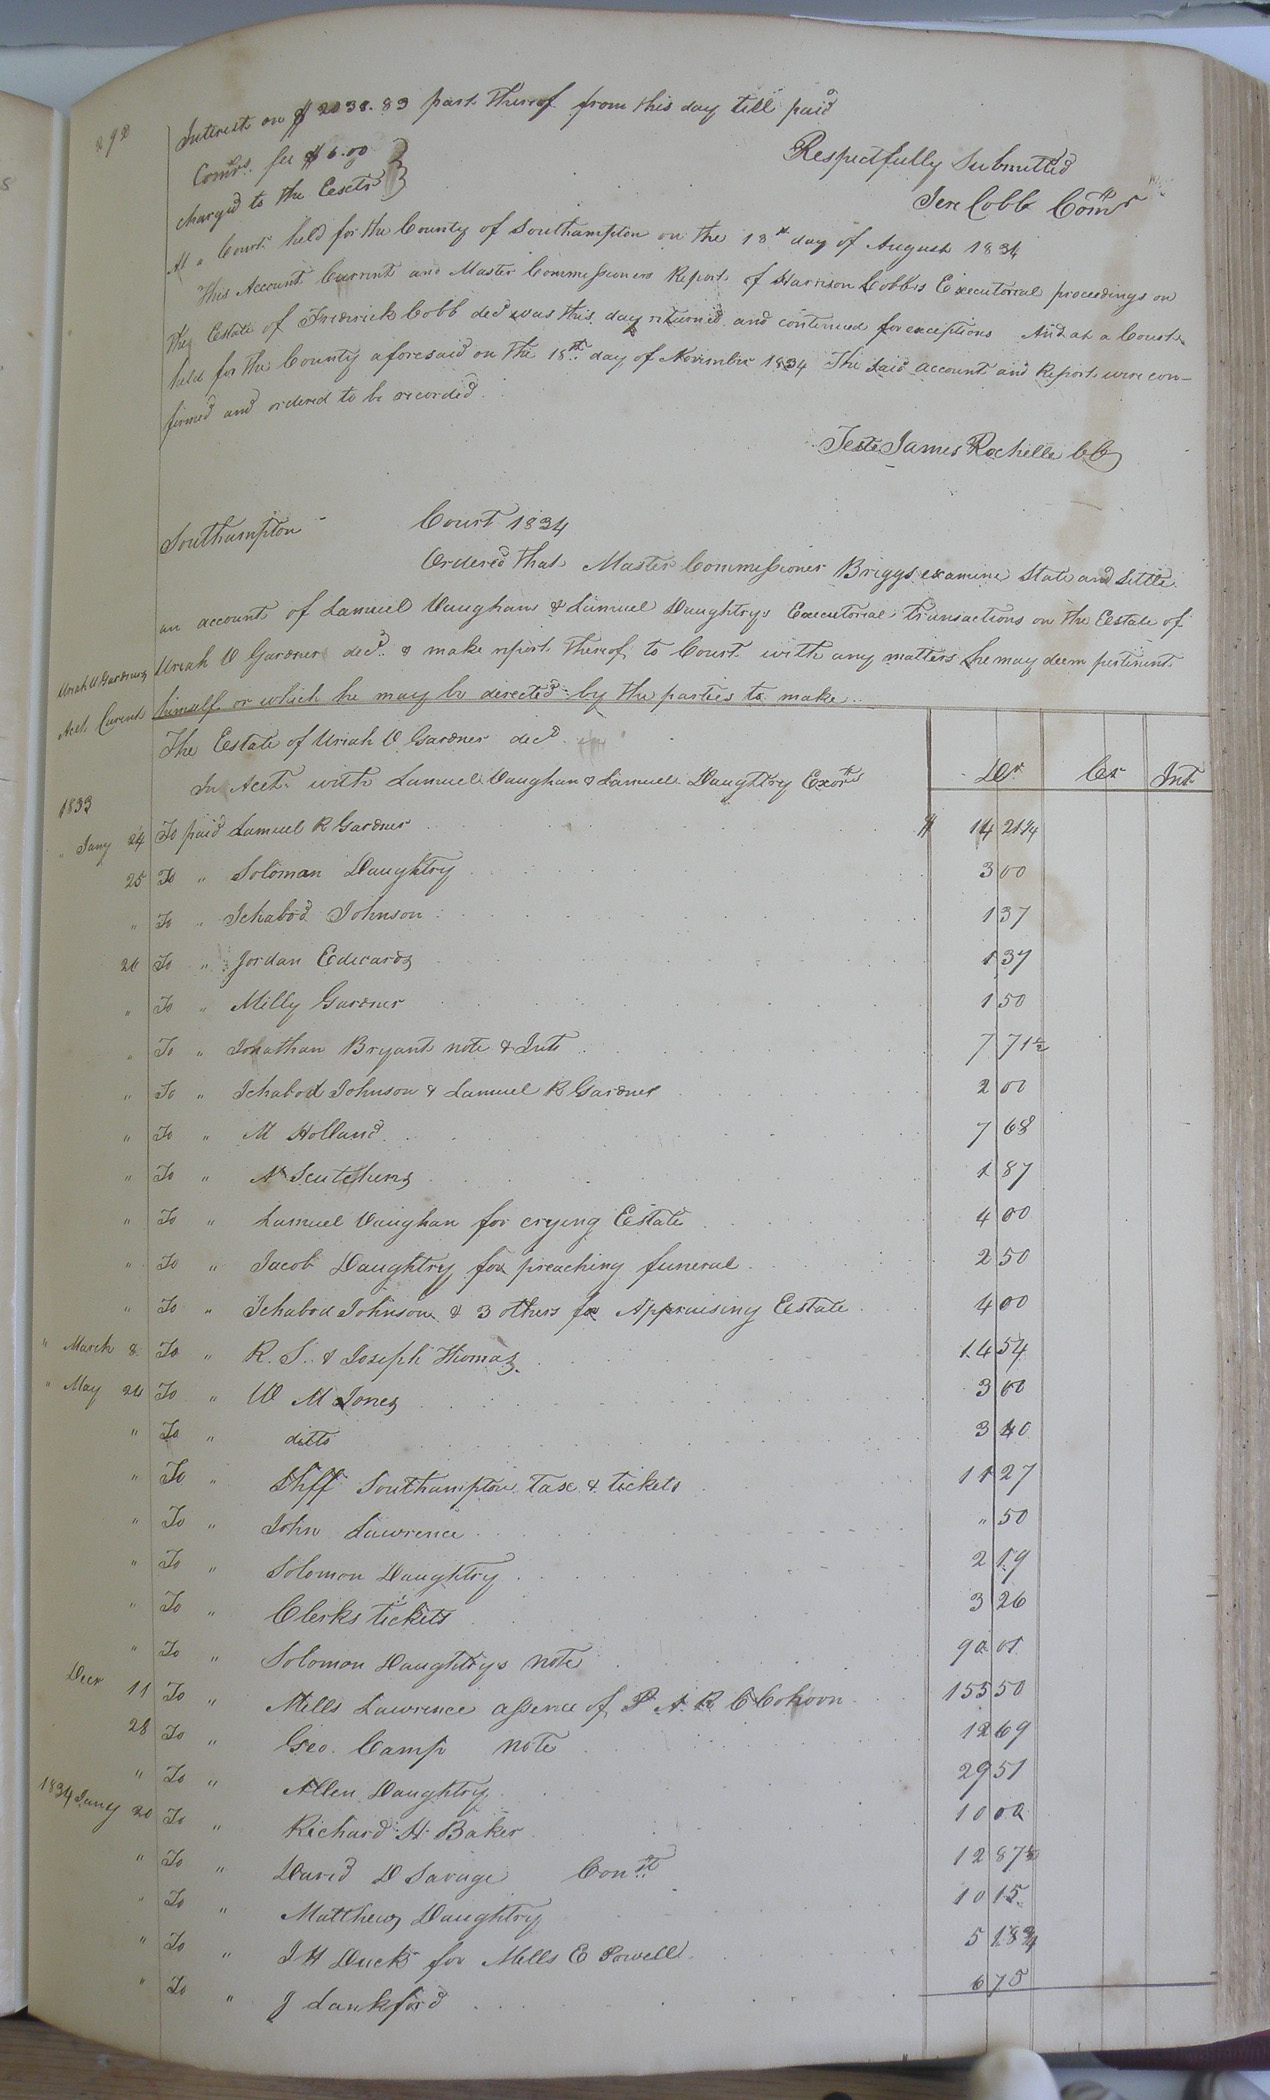 292
Interest on $2038.83 part thereof from this day till paid
Comrs. fee $6.00
charged to the Exctr
Respectfully Submitted
Jere Cobb Comr
At a Court held for the County of Southampton on the 18th day of August 1834
This Account Current and Master Commissioners Report of Harrison Cobbs Executorial proceedings on
the Estate of Fredrick Cobb decd was this day returned and continued for exceptions And at a Court
held for the County aforesaid on the 18th day of November 1834 The said account and Report were con-
firmed and ordered to be recorded
Teste James Rochelle CC
Southampton Court 1834
Ordered that Master Commissioner Briggs examine State and Settle
an account of Lamuel Vaughans & Lamuel Daughtrys Executorial transactions on the Estate of
Uriah V Gardner decd. & make report thereof to Court with any matters he may deem pertinent
himself or which he may be directed by the parties to make
Uriah V Gardners
Acct. Curent
The Estate of Uriah V Gardner decd
In Acct. with Lamuel Vaughan & Lamuel Daughtry Exors Dr Cr Int
1833
" Jany 24 To paid Lamuel R Gardner $ 14 21 3/4
25 To " Soloman Daughtry 3 00
" To " Ichabod Johnson 1 37
26 To " Jordan Edwards 1 37
" To " Milly Gardner 1 50
" To " Jonathan Bryant note & Int 7 71 1/2
" To " Ichabod Johnson & Lamuel R Gardner 2 00
" To " M Holland 7 68
" To " A Scutchins 1 87
" To " Lamuel Vaughan for crying Estate 4 00
" To " Jacob Daughtry for preaching funeral 2 50
" To " Ichabod Johnson & 3 others for Appraising Estate 4 00
" March 8 To " R. S. & Joseph Thomas 14 54
" May 24 To " W M Jones 3 00
" To " ditto 3 40
" To " Shff Southampton tax & tickets 11 27
" To " John Lawrence " 50
" To " Solomon Daughtry 2 19
" To " Clerks tickets 3 26
" To " Solomon Daughtrys note 90 01
Decr 11 To " Mills Lawrence assence of P A R C Cohoon 155 50
28 To " Geo. Camp note 12 69
" To " Allen Daughtry 29 51
1834 Jany 20 To " Richard H Baker 10 00
" To " David D Savage Const. 12 87 1/2
" To " Matthew Daughtry 10 15
" To " J H Duck for Mills E Powell 5 18 3/4
" To " J Lankford 6 75